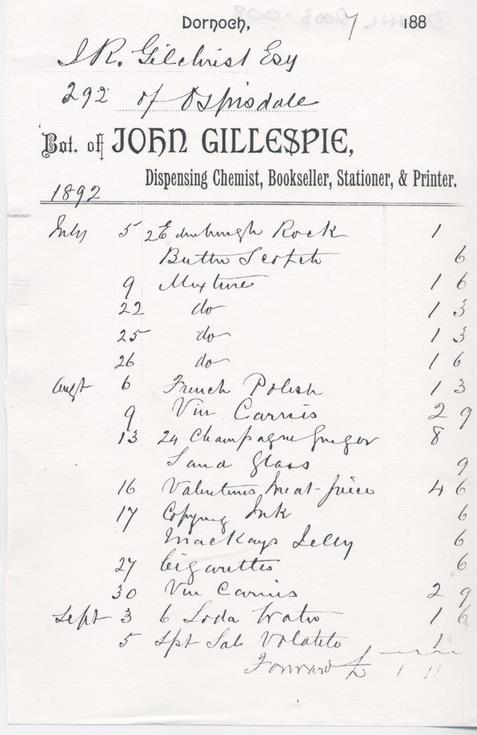 Dornoch, 7 188
I R. Gilchrist Esq
292 of Ospisdale
Bot. of JOHN GILLESPIE,
Dispensing Chemist, Bookseller, Stationer, & Printer.
1892
July 5 2 Edinburgh Rock 1
Butter Scotch 6
9 Mixture 1 6
22 do 1 3
25 do 1 3
26 do 1 6
Augt 6 French Polish 1 3
9 Vin Carnis 2 9
13 24 Champagne Ginger 8
Sand Glass 9
16 Valentines Meat-Juice 4 6
17 Copying Ink 6
Mackays Jelly 6
27 Cigarettes 6
30 Vin Carnis 2 9
Sept 3 6 Soda Water 1 6
5 Spt Sal Volatile 1
Forward £ 1 11